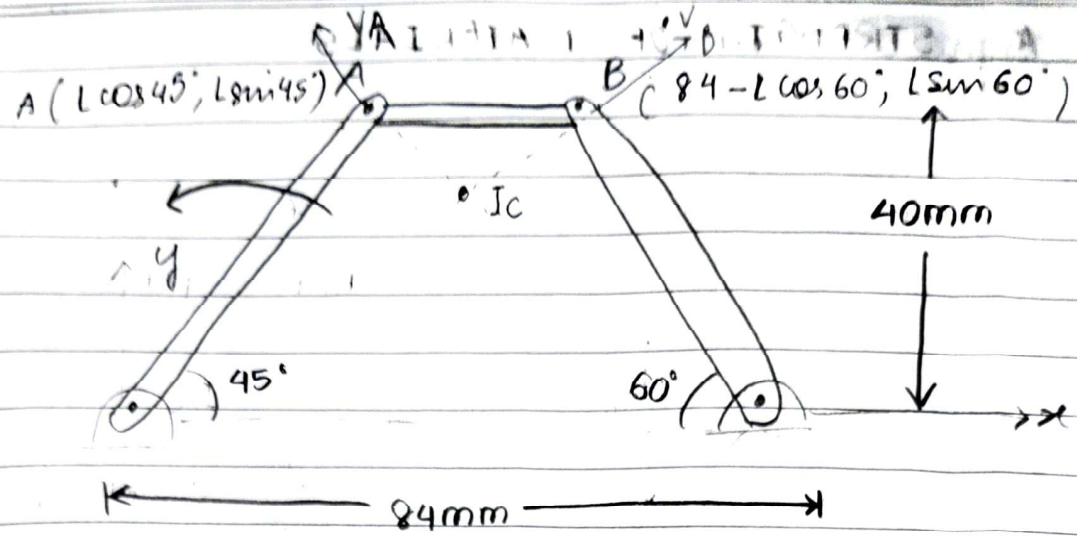 VA
VB
A (L cos 45°, L sin 45°) A
B
( 84 - L cos 60°, L sin 60° )
Ic
40mm
y
45°
60°
x
84mm